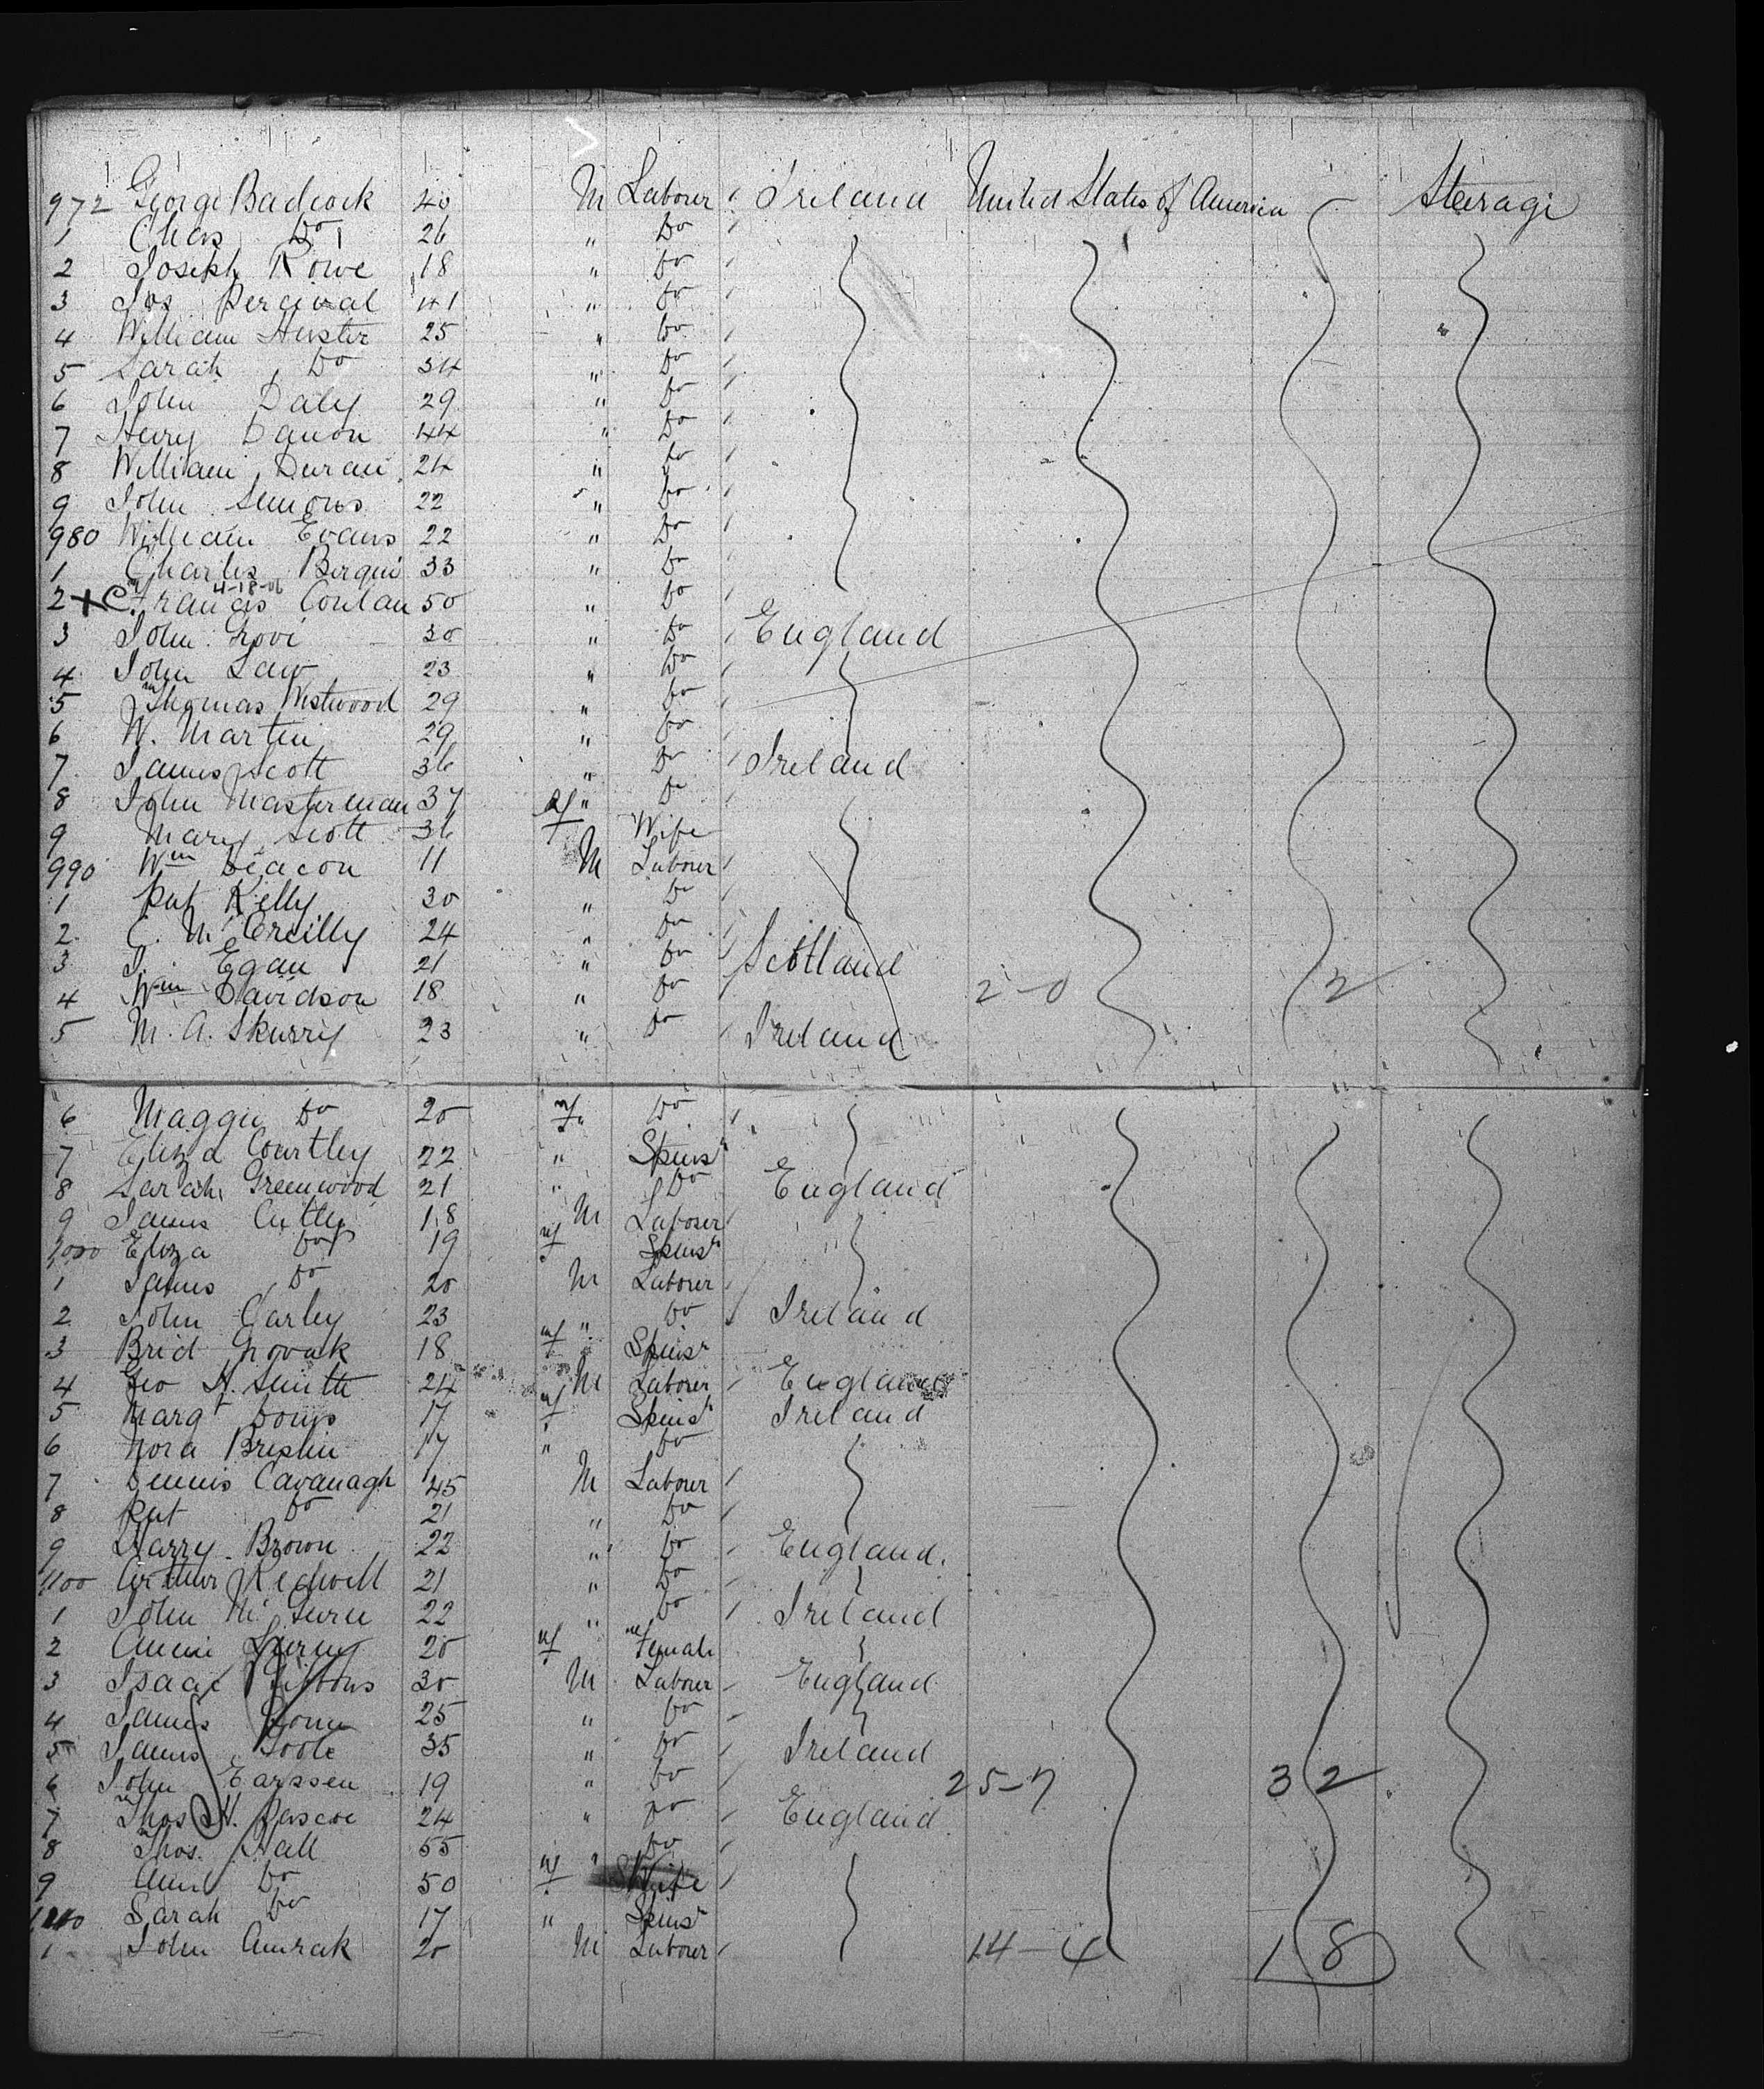 972 George Badcock 40 M Laborer Ireland United States of America Steerage
1 Chas Do 26 " Do
2 Joseph Rowe 18 " Do
3 Jos Percival 41 " Do
4 William Huster 25 " Do
5 Sarah Do 34 " Do
6 John Daly 29 " Do
7 Henry 44 " Do
8 William Duran 24 " Do
9 John Simons 22 " Do
980 William Evans 22 " Do
1 Charles Bergui 33 " Do
2 X C 4-18-06 Francis Conlan 50 " Do
3 John 30 " Do England
4 John Law 23 " Do
5 Thomas Westwood 29 " Do
6 W. Martin 29 " Do
7 James Scott 36 " Do Ireland
8 John Masterman 37 " Do
9 Mary Scott 36 f Wife
990 Wm Deacon 11 M Labourer
1 Pat Kelly 30 " Do
2 C. McCreilly 24 " Do
3 J. Egan 21 " Do Scotland
4 Wm Davidson 18 " Do 2-0 2
5 M. A. Skurry 23 " Do Ireland
6 Maggie Do 20 f " Do
7 Eliza Courtley 22 " Spinsr
8 Sarah Greenwood 21 " Do England
9 James Cutler 18 M Laborer
1000 Eliza Do 19 f Spinsr
1 James Do 20 M Laborer
2 John Carley 23 " Do Ireland
3 Brid Novak 18 f Spinsr
4 Geo H. Smith 24 M Laborer England
5 Margt 17 f Spinsr Ireland
6 Nora Breslin 17 " Do
7 Dennis Cavanagh 45 M Labourer
8 Pat Do 21 " Do
9 Harry Brown 22 " Do England
1100 Arthur Kedwell 21 " Do
1 John Mc 22 " Do Ireland
2 Annie 20 f Female
3 Isaac Gibbons 30 M Labourer England
4 James 25 " Do
5 James Toole 35 " Do Ireland
6 John Earssen 19 " Do 25-7 32
7 Thos H. Pascoe 24 " Do England
8 Thos. Hall 55 " Do
9 Ann Do 50 f Wife
1110 Sarah Do 17 " Spinsr
1 John Amrak 20 M Labourer 14-4 18